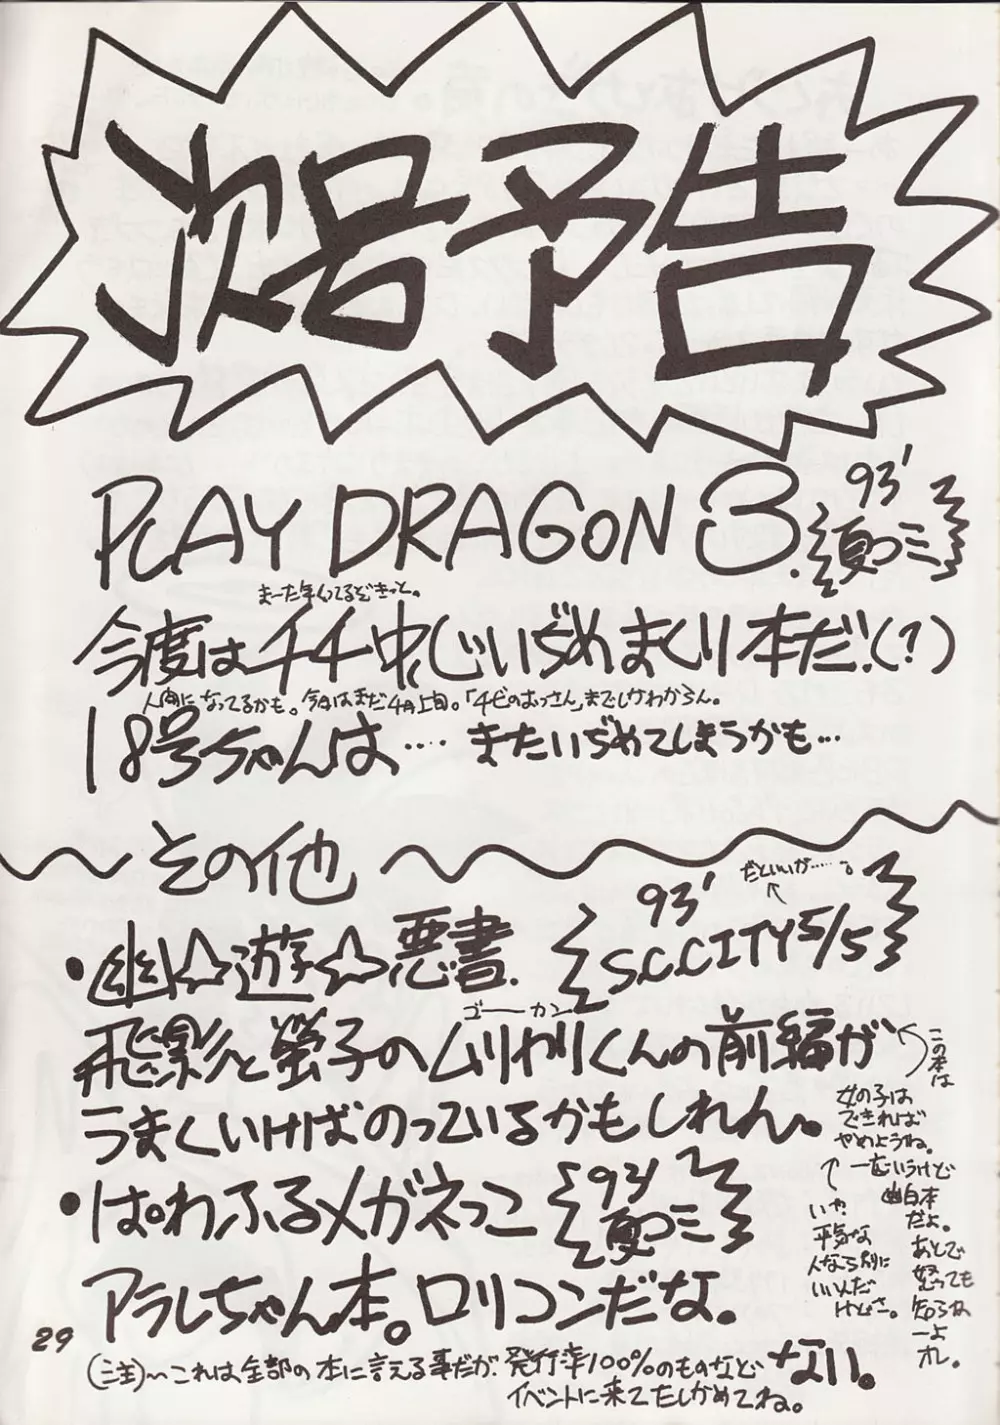 次号予告
PLAY DRAGON 3.
93' 夏コミ
まーた年くってるぞきっと。
今度はチチ中心じいぢめまくり本だ!(?)
人間になってるかも。今日はまだ4月上旬。「チビのおっさん」までしかわからん。
18号ちゃんは‥‥またいぢめてしまうかも…
その他
だといいが……。
・幽☆遊☆悪書.
93' S.C.CITY 5/5
ゴーカン
飛影と螢子のムリヤリくんの前編が
うまくいけばのっているかもしれん。
この本は
女の子は
できれば
やめようね。
一応いうけど
幽白本
だよ。
あとで
怒っても
知らねーよ
オレ。
いや
平気な
人なら別に
いいんだ
けどさ。
・ぱわふるメガネっこ
93' 夏コミ
アラレちゃん本。ロリコンだな。
(注)〜これは全部の本に言える事だが発行率100%のものなどない。
イベントに来てたしかめてね。
29